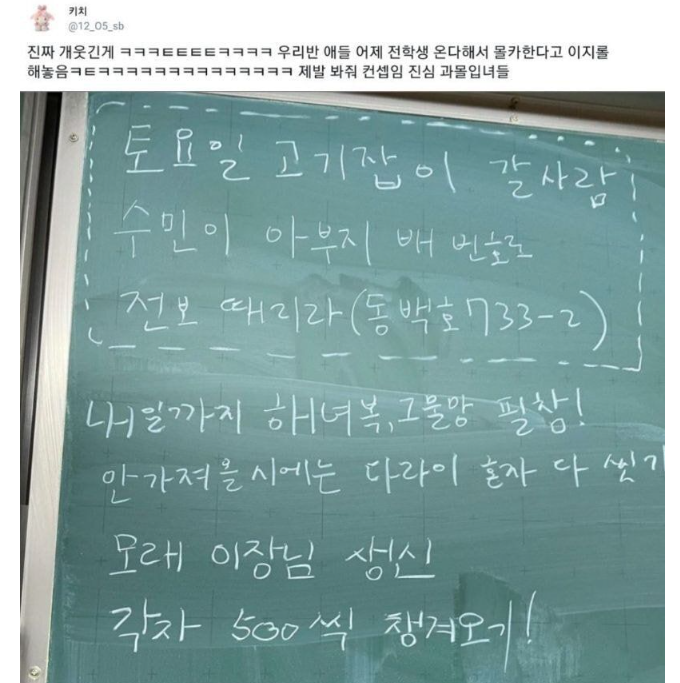 키치
@12_05_sb
진짜 개웃긴게 ㅋㅋㅋㅌㅌㅌㅌㅋㅋㅋㅋ 우리반 애들 어제 전학생 온다해서 몰카한다고 이지롤
해놓음ㅋㅌㅋㅋㅋㅋㅋㅋㅋㅋㅋㅋㅋㅋㅋㅋ 제발 봐줘 컨셉임 진심 과몰입녀들
토요일 고기잡이 갈사람
수민이 아부지 배 번호로
전보 때리라(동백호733-2)
내일까지 해녀복,그물망 필참!
안가져올시에는 다라이 혼자 다 씻기
모레 이장님 생신
각자 500씩 챙겨오기!